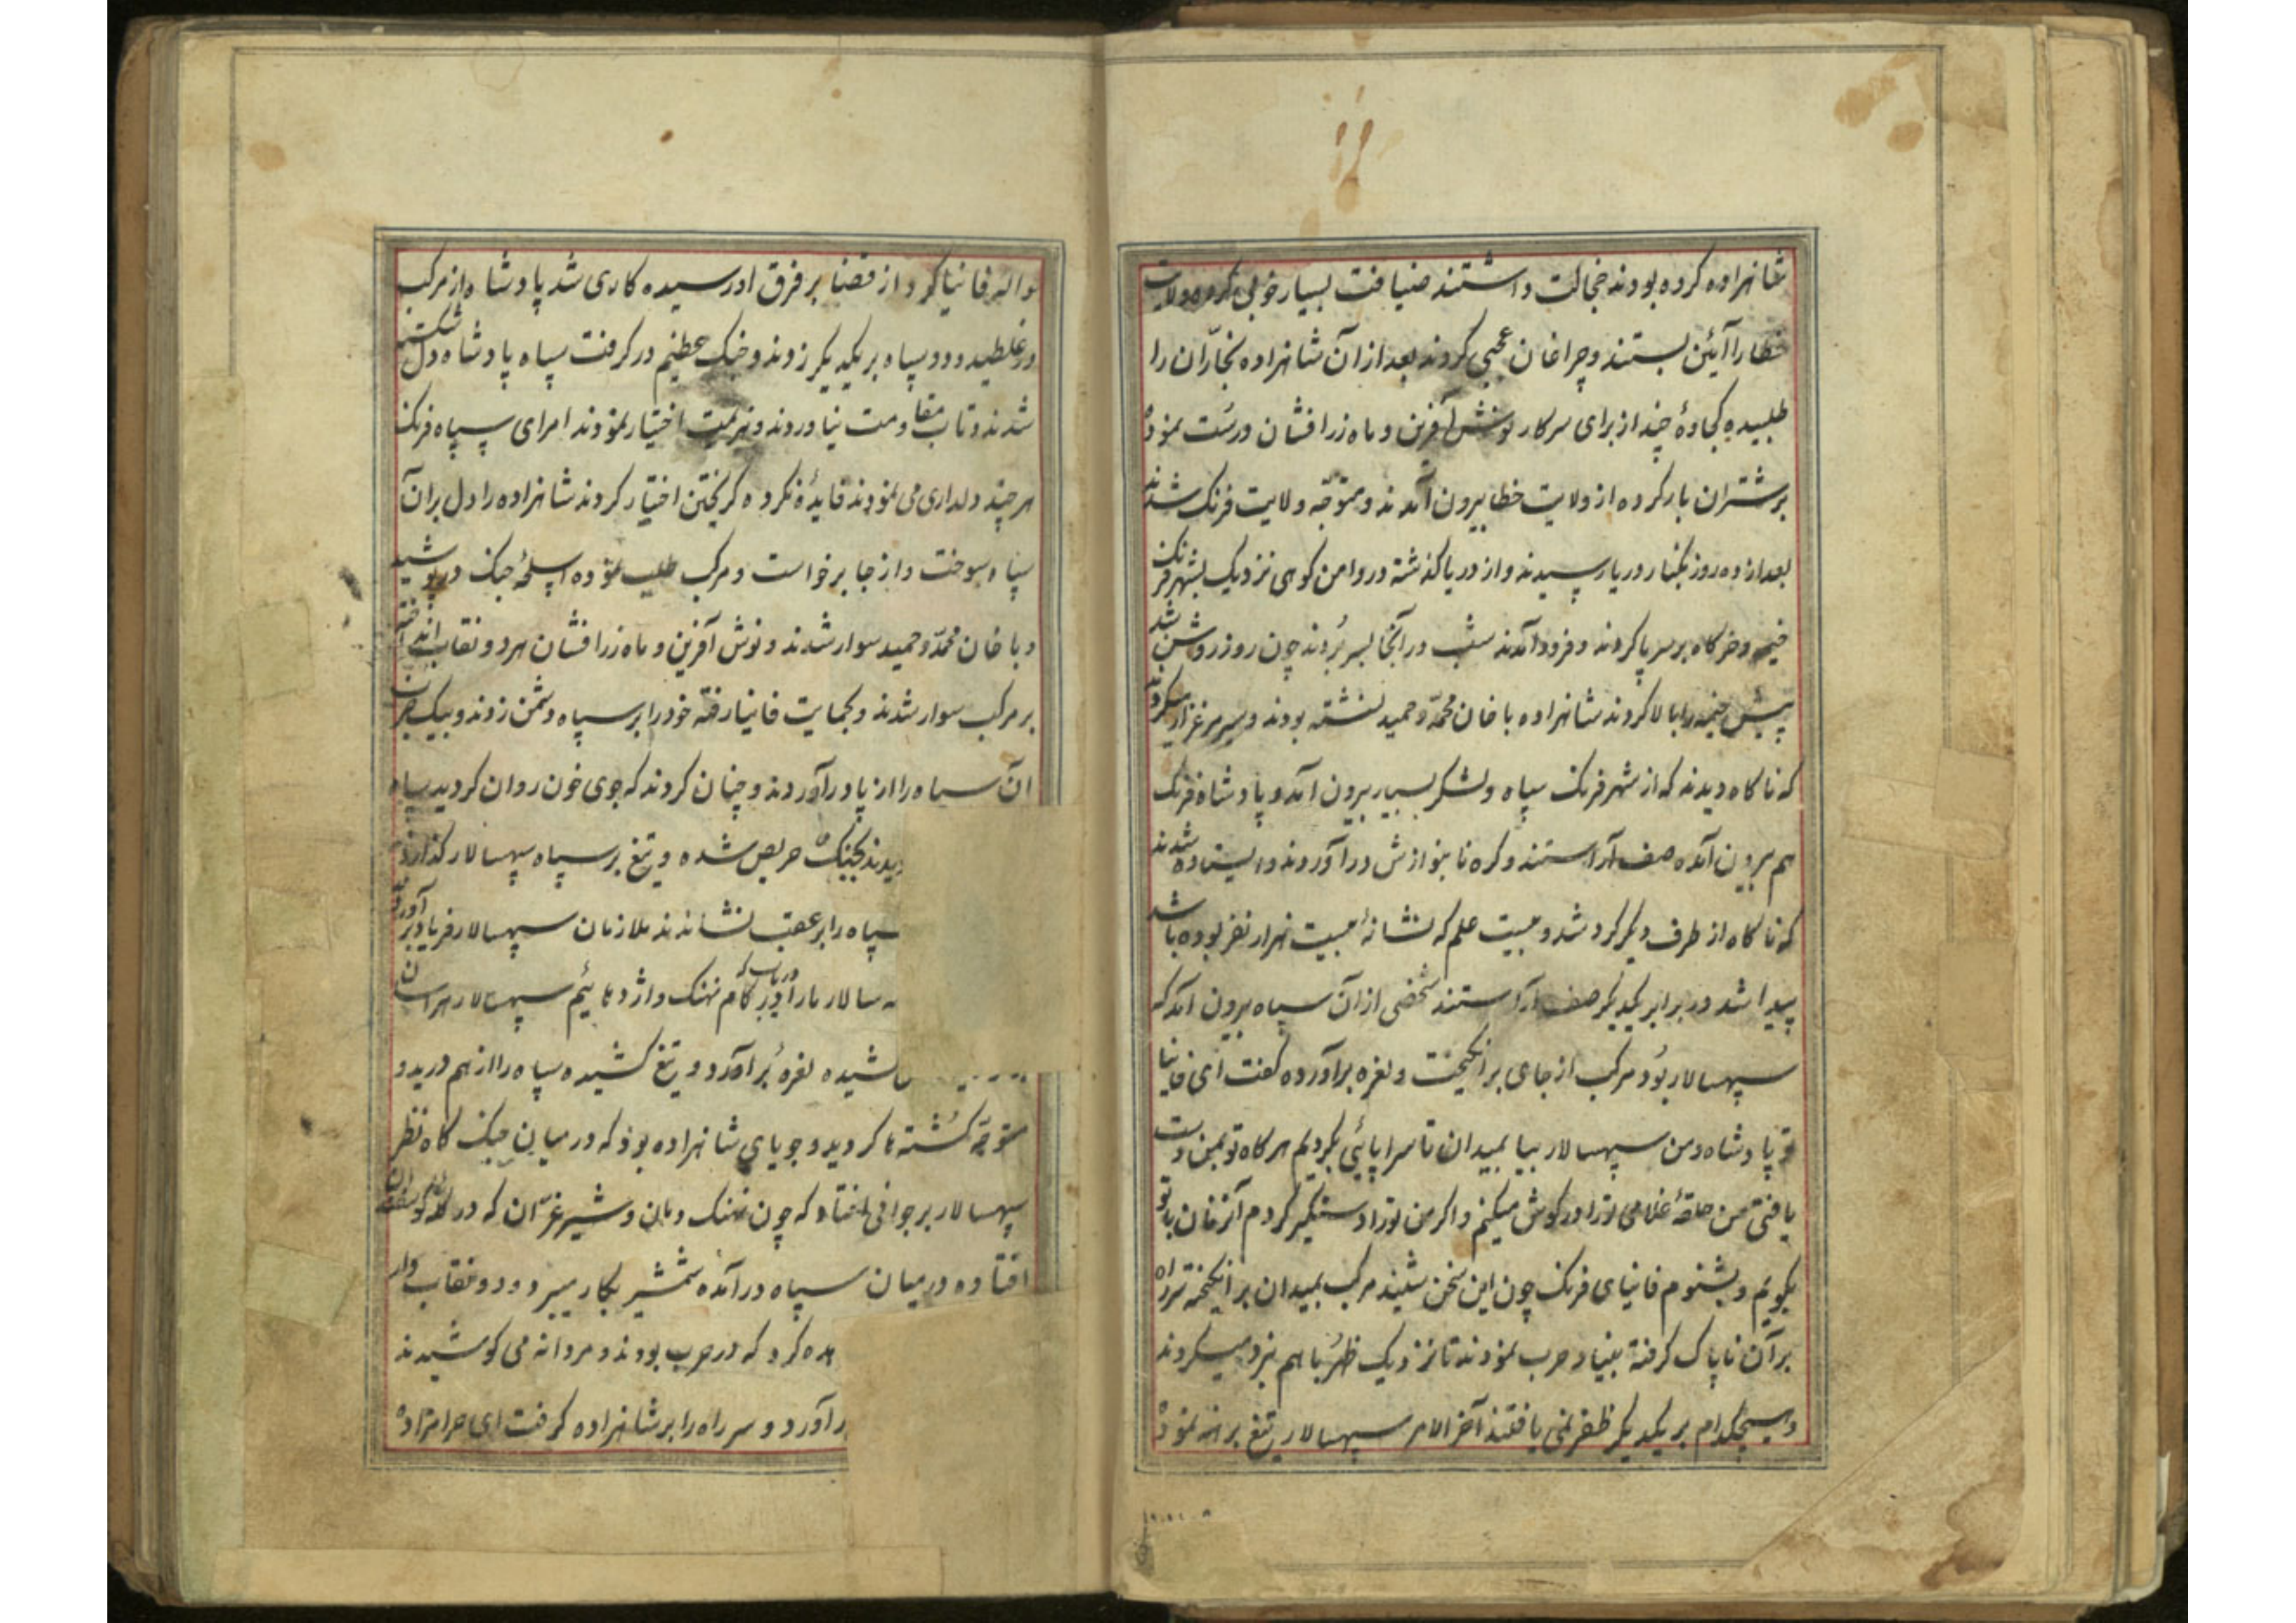 شاهزاده کرده بودند خجالت داشتند ضیافت بسیار خوبی کرده ولایت
خطا را آئین بستند و چراغان عجبی کردند بعد از آن شاهزاده نجّاران را
طلبیده کجاوهٔ چند از برای سرکار نوش آفرین و ماه زرافشان درست نمود
بر شتران بار کرده از ولایت خطا بیرون آمدند و متوجّه ولایت فرنک شدند
بعد از ده روز بکنار دریا رسیدند و از دریا کذشته در دامن کوهی نزدیک بشهر فرنک
خیمه و خرکاه بر سر پا کردند و فرود آمدند شب در آنجا بسر بُردند چون روز روشن شد
پیش خیمه را بالا کردند شاهزاده با خان محمّد و حمید نشسته بودند و سیر مرغزار میکردند
که ناکاه دیدند که از شهر فرنک سپاه و لشکر بسیار بیرون آمد و پادشاه فرنک
هم بیرون آمده صف آراستند و کره نا بنوازش در آوردند و ایستاده شدند
که ناکاه از طرف دیکر کرد شد و بیست علم که نشانهٔ بیست هزار نفر بوده باشد
پیدا شد در برابر یکدیکر صف آراستند شخصی از آن سپاه بیرون آمد که
سپهسالار بُود مرکب از جای بر انکیخت و نعره برآورده کفت ای فانیا
تو پادشاه و من سپهسالار بیا بمیدان تا سراپائی بکردیم هرکاه تو بمن دست
یافتی من حلقهٔ غلامی تو را در کوش میکنم و اکر من تو را دستکیر کردم آنزمان با تو
بکویم و بشنوم فانیای فرنک چون این سخن شنید مرکب بمیدان بر انکیخته سر راه
بر آن ناپاک کرفته بنیاد حرب نمودند تا نزدیک ظهر با هم نبرد میکردند
و هیچکدام بر یکدیکر ظفر نمی یافتند آخر الامر سپهسالار تیغ برهنه نمود
حواله فانیا کرد از قضا بر فرق او رسیده کاری شد پادشاه از مرکب
در غلطید و دو سپاه بر یکدیکر زدند و جنک عظیم در کرفت سپاه پادشاه دل شکسته
شدند و تاب مقاومت نیاوردند و هزیمت اختیار نمودند امرای سپاه فرنک
هر چند دلداری می نمودند فایدهٔ نکرده کریختن اختیار کردند شاهزاده را دل بر آن
سپاه سوخت و از جا برخواست و مرکب طلب نموده اسلحهٔ جنک در پوشید
و با خان محمّد و حمید سوار شدند و نوش آفرین و ماه زرافشان هر دو نقاب انداخته
بر مرکب سوار شدند و بحمایت فانیا رفته خود را بر سپاه دشمن زدند و بیک
آن سپاه را از پا در آوردند و چنان کردند که جوی خون روان کردید سپاه
دیدند بجنک حریص شده و تیغ بر سپاه سپهسالار کذاردند
سپاه را بر عقب نشاندند ملازمان سپهسالار فریاد بر آوردند
سالار ما را دریاب که در کام نهنک و اژدهائیم سپهسالار هراسان
کشیده نعره بُر آورد و تیغ کشیده سپاه را از هم درید و
متوجّه کشته ها کردید و جویای شاهزاده بود که در میان جنک کاه نظر
سپهسالار بر جوانی افتاد که چون نهنک دمان و شیر غرّان که در کله کوسفندان
افتاده در میان سپاه درآمده شمشیر بکار میبرد و دو نقاب دار
کرد که در حرب بودند و مردانه می کوشیدند
در آورد و سر راه را بر شاهزاده کرفت ای حرامزاده